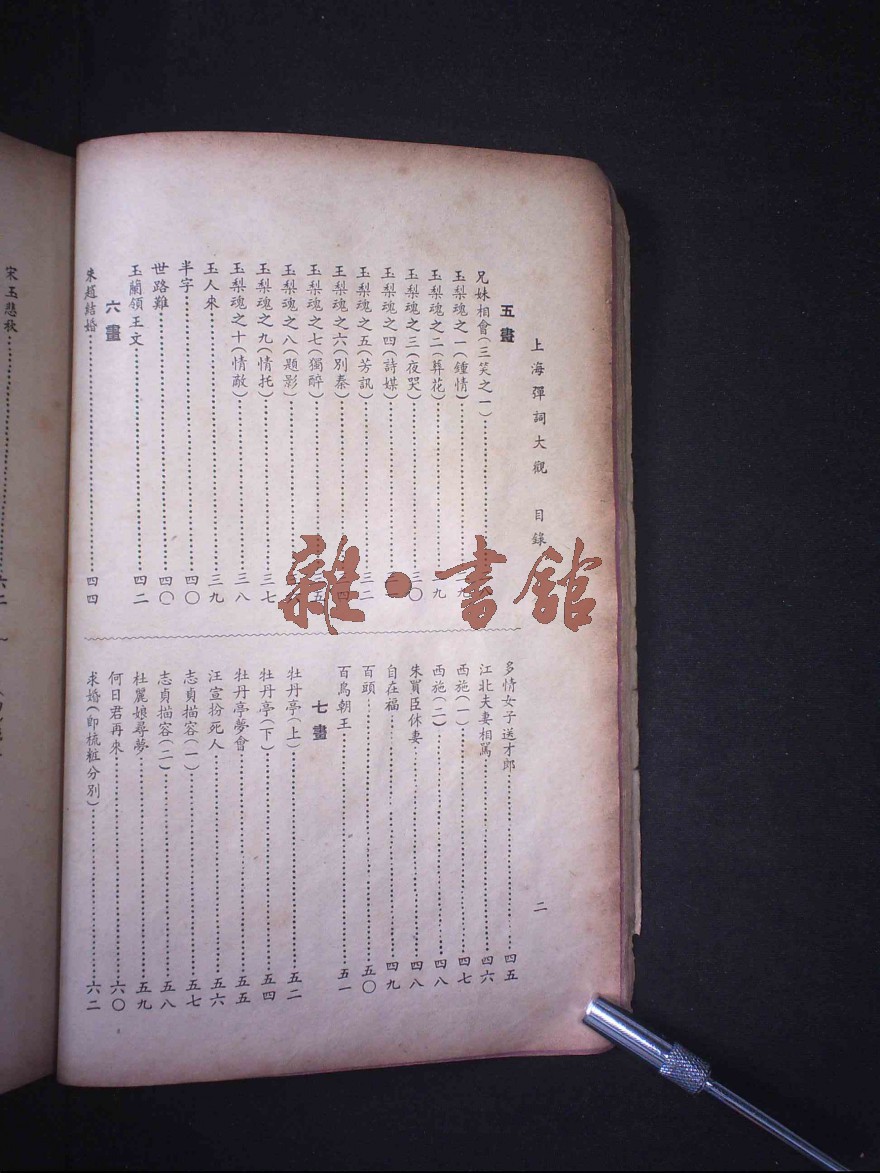 上海彈詞大觀 目錄 二
五畫
兄妹相會(三笑之一)
玉梨魂之一(鍾情)
玉梨魂之二(葬花)
玉梨魂之三(夜哭)三〇
玉梨魂之四(詩媒)
玉梨魂之五(芳訊)三二
玉梨魂之六(別秦)
玉梨魂之七(獨醉)
玉梨魂之八(題影)
玉梨魂之九(情托)三七
玉梨魂之十(情敵)三八
玉人來三九
半字四〇
世路難四〇
玉蘭領王文四二
六畫
朱趙結婚四四
多情女子送才郎四五
江北夫妻相罵四六
西施(一)四七
西施(二)四八
朱買臣休妻四八
自在福四九
百頭五〇
百鳥朝王五一
七畫
牡丹亭(上)五二
牡丹亭(下)五四
牡丹亭夢會五五
汪宣扮死人五六
志貞描容(一)五七
志貞描容(二)五八
杜麗娘尋夢五九
何日君再來六〇
求婚(即梳粧分別)六二
宋玉悲秋六二
雜·書館